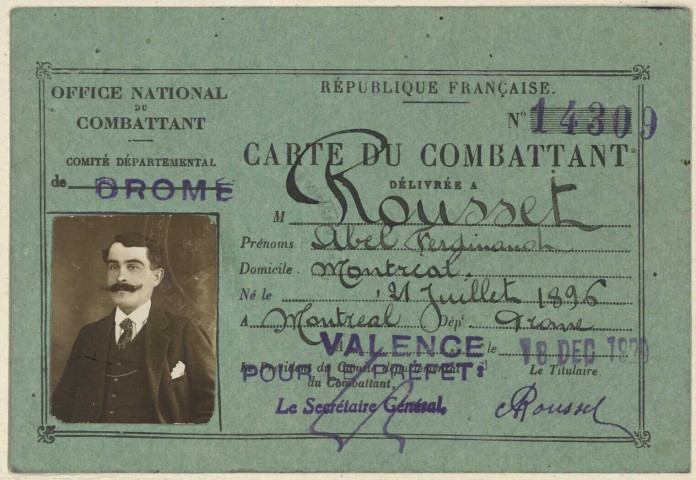 OFFICE NATIONAL
DU
COMBATTANT
COMITÉ DÉPARTEMENTAL
de DROME
RÉPUBLIQUE FRANÇAISE.
N° 14309
CARTE DU COMBATTANT
DÉLIVRÉE A
M Rousset
Prénoms Abel Ferdinand
Domicile Montreal.
Né le 21 Juillet 1896
A Montreal Dépt Drome
VALENCE le 18 DEC
Le Président du Comité départemental
POUR LE PRÉFET:
du Combattant,
Le Secrétaire Général,
Le Titulaire
Rousset